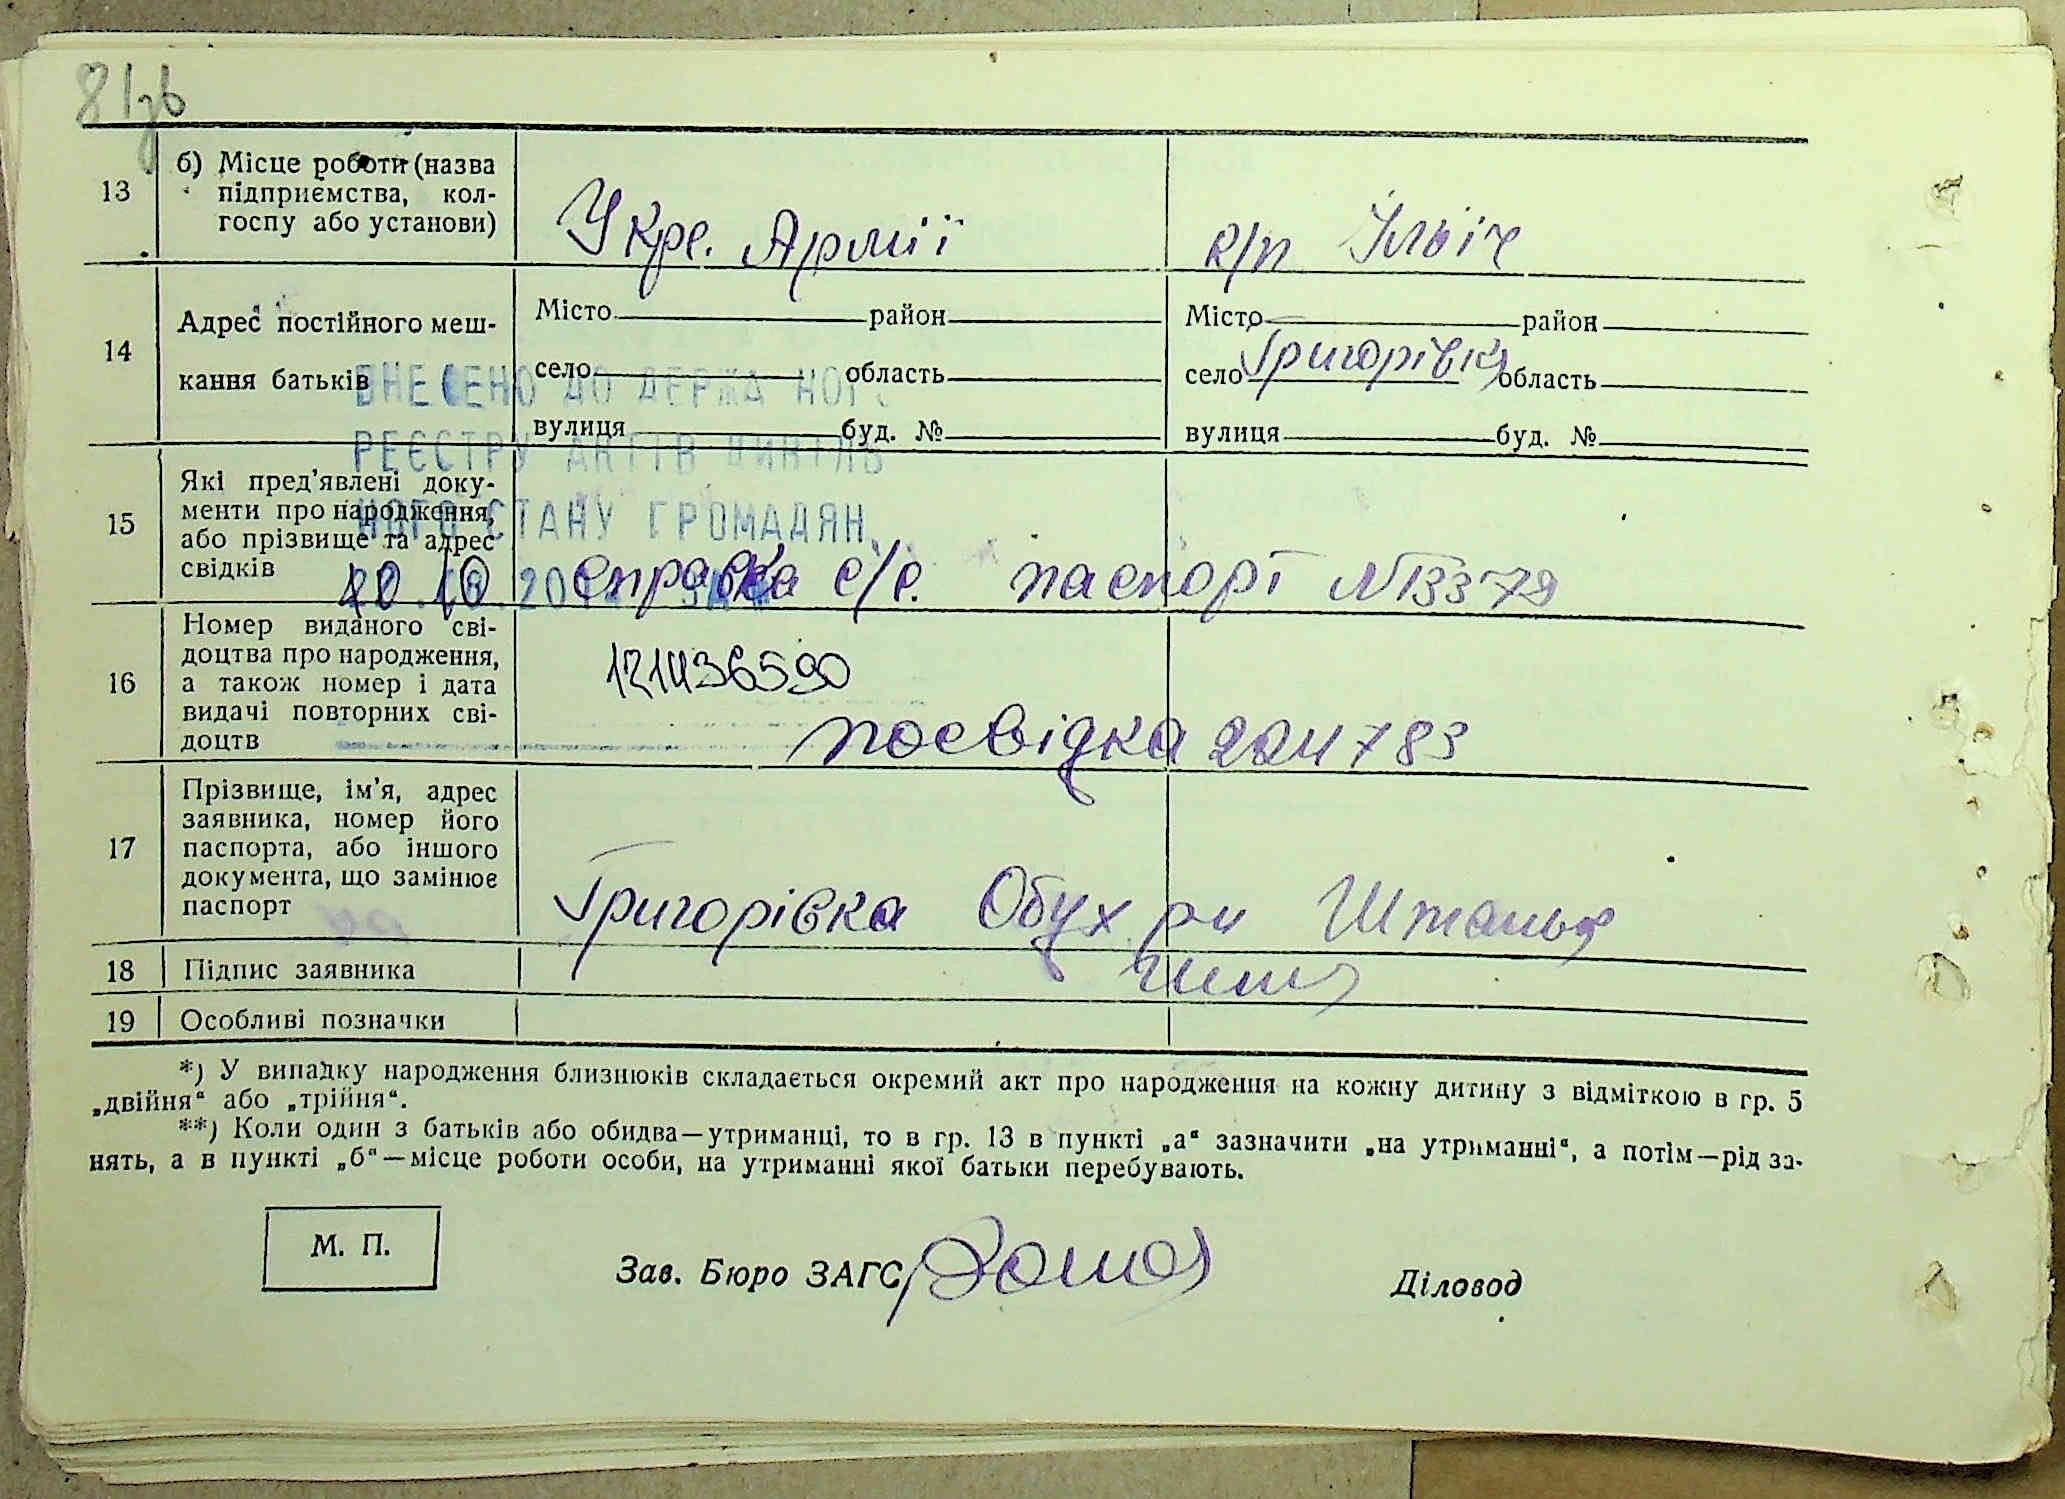 81зв
13
б) Місце роботи (назва
підприємства, кол-
госпу або установи)
Укре. Армії
к/п Ілліч
14
Адрес постійного меш-
кання батьків
Місто район
село область
вулиця буд. №
Місто район
село Григорівка область
вулиця буд. №
ВНЕСЕНО ДО ДЕРЖА НОГ
РЕЄСТРУ АКТІВ ЦИВІЛЬ
НОГО СТАНУ ГРОМАДЯН
15
Які пред’явлені доку-
менти про народження,
або прізвище та адрес
свідків
справка с/с. паспорт №13379
16
Номер виданого сві-
доцтва про народження,
а також номер і дата
видачі повторних сві-
доцтв
посвідка 224783
17
Прізвище, ім’я, адрес
заявника, номер його
паспорта, або іншого
документа, що замінює
паспорт
Григорівка Обух рн
18 Підпис заявника
19 Особливі позначки
*) У випадку народження близнюків складається окремий акт про народження на кожну дитину з відміткою в гр. 5
„двійня“ або „трійня“.
**) Коли один з батьків або обидва—утриманці, то в гр. 13 в пункті „а“ зазначити „на утриманні“, а потім—рід за-
нять, а в пункті „б“—місце роботи особи, на утриманні якої батьки перебувають.
М. П.
Зав. Бюро ЗАГС
Діловод